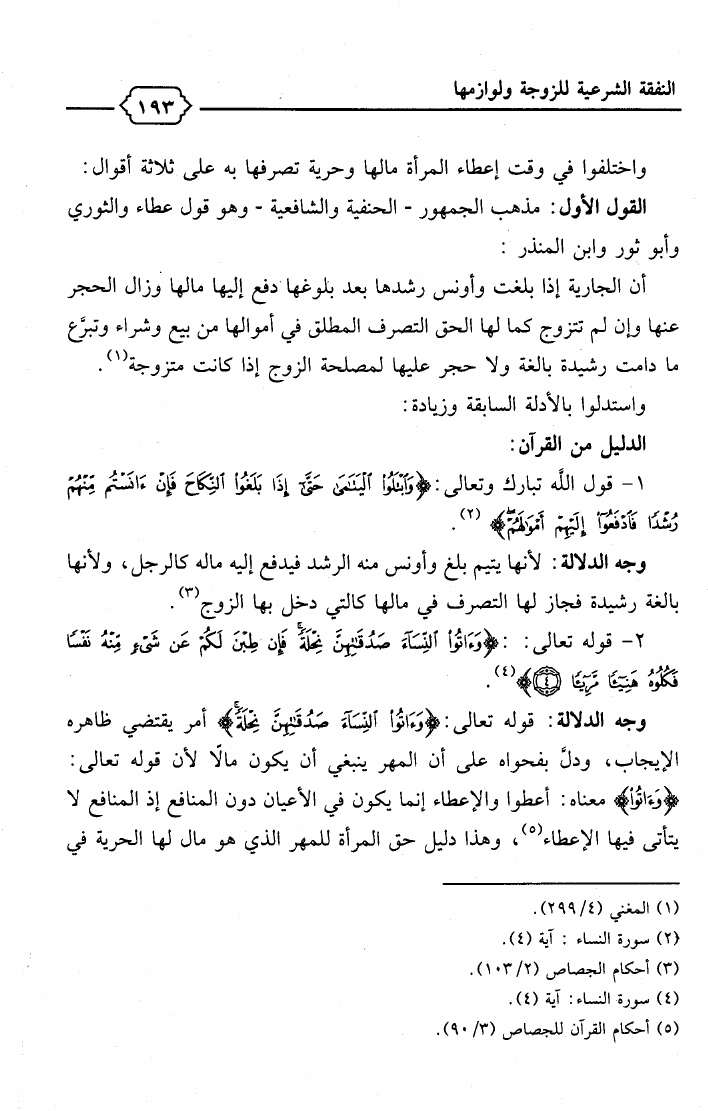 النفقة الشرعية للزوجة ولوازمها
١٩٣
واختلفوا في وقت إعطاء المرأة مالها وحرية تصرفها به على ثلاثة أقوال:
القول الأول: مذهب الجمهور - الحنفية والشافعية - وهو قول عطاء والثوري
وأبو ثور وابن المنذر :
أن الجارية إذا بلغت وأونس رشدها بعد بلوغها دفع إليها مالها وزال الحجر
عنها وإن لم تتزوج كما لها الحق التصرف المطلق في أموالها من بيع وشراء وتبرَّع
ما دامت رشيدة بالغة ولا حجر عليها لمصلحة الزوج إذا كانت متزوجة(١).
واستدلوا بالأدلة السابقة وزيادة:
الدليل من القرآن:
١- قول اللَّه تبارك وتعالى: ﴿وَٱبْتَلُوا۟ ٱلْيَتَٰمَىٰ حَتَّىٰٓ إِذَا بَلَغُوا۟ ٱلنِّكَاحَ فَإِنْ ءَانَسْتُم مِّنْهُمْ
رُشْدًا فَٱدْفَعُوٓا۟ إِلَيْهِمْ أَمْوَٰلَهُمْ ۖ﴾ (٢).
وجه الدلالة: لأنها يتيم بلغ وأونس منه الرشد فيدفع إليه ماله كالرجل، ولأنها
بالغة رشيدة فجاز لها التصرف في مالها كالتي دخل بها الزوج(٣).
٢- قوله تعالى: :﴿وَءَاتُوا۟ ٱلنِّسَآءَ صَدُقَٰتِهِنَّ نِحْلَةً ۚ فَإِن طِبْنَ لَكُمْ عَن شَىْءٍ مِّنْهُ نَفْسًا
فَكُلُوهُ هَنِيٓـًٔا مَّرِيٓـًٔا ﴿٤﴾﴾(٤).
وجه الدلالة: قوله تعالى: ﴿وَءَاتُوا۟ ٱلنِّسَآءَ صَدُقَٰتِهِنَّ نِحْلَةً ۚ﴾ أمر يقتضي ظاهره
الإيجاب، ودلَّ بفحواه على أن المهر ينبغي أن يكون مالًا لأن قوله تعالى:
﴿وَءَاتُوا۟﴾ معناه: أعطوا والإعطاء إنما يكون في الأعيان دون المنافع إذ المنافع لا
يتأتى فيها الإعطاء(٥)، وهذا دليل حق المرأة للمهر الذي هو مال لها الحرية في
(١) المغني (٢٩٩/٤).
(٢) سورة النساء : آية (٤).
(٣) أحكام الجصاص (١٠٣/٢).
(٤) سورة النساء: آية (٤).
(٥) أحكام القرآن للجصاص (٩٠/٣).